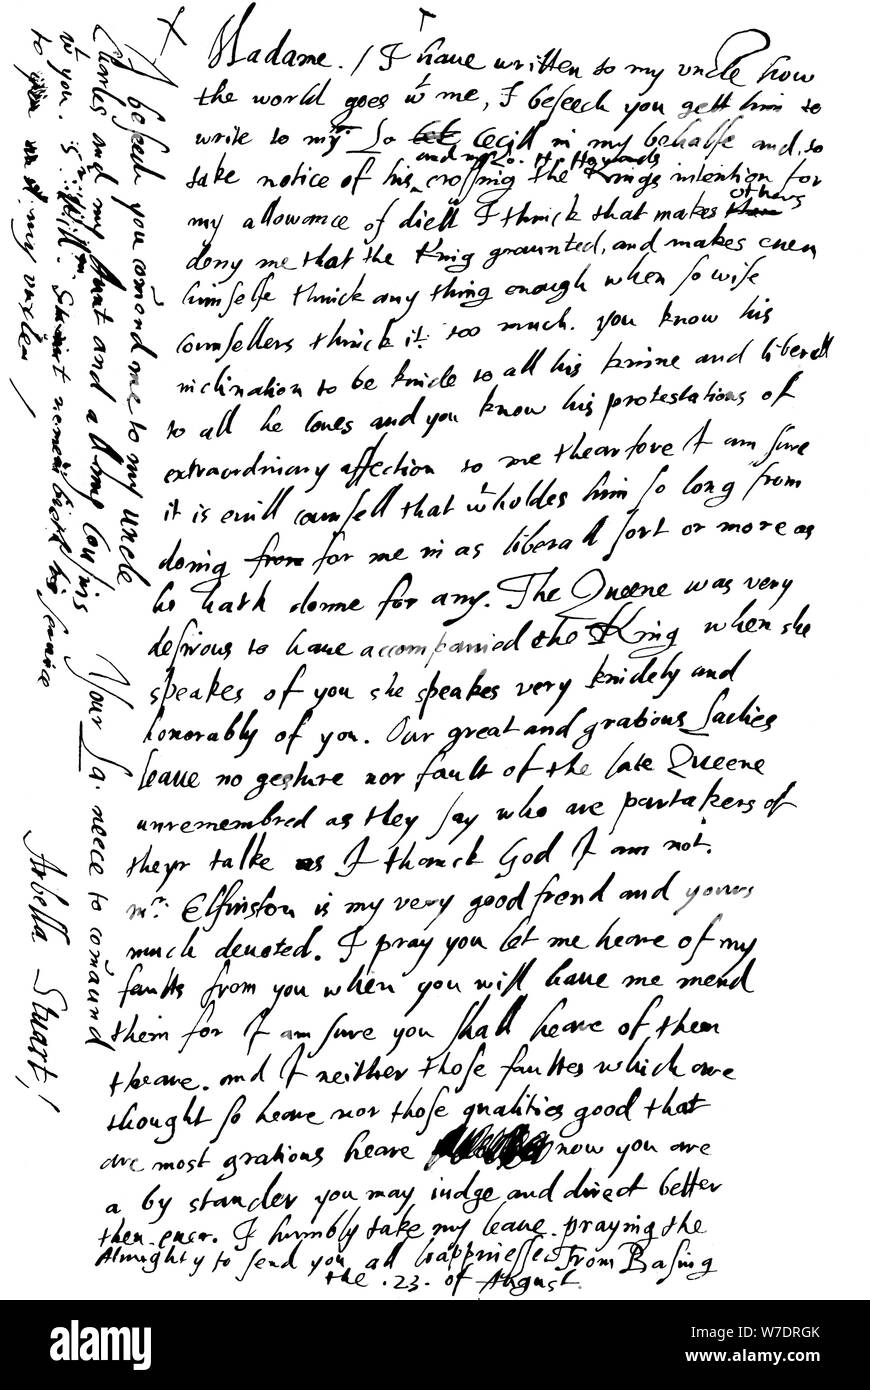 Madame. / I have written to my uncle how
the world goes wt me, I beseech you gett him to
write to my Lo Cecill in my behalfe and, so
and my Lo. H. Howards
take notice of his crossing the Kings intention for
others
my allowance of diett I thinck that makes
deny me that the King graunted, and makes even
himselfe thinck any thing enough when so wise
counsellers thinck it too much. you know his
inclination to be kinde to all his kinne and liberall
to all he loves and you know his protestations of
extraordinary affection to me thearfore I am sure
it is evill counsell that wtholdes him so long from
doing from for me in as liberall sort or more as
he hath donne for any. The Queene was very
desirous to have accompanied the King when she
speakes of you she speakes very kindely and
honorably of you. Our great and gratious Ladies
leave no gesture nor fault of the late Queene
unremembred as they say who are partakers of
theyr talke as I thanck God I am not.
mr. Elfinston is my very good frend and yours
much devoted. I pray you let me heare of my
faults from you when you will have me mend
them for I am sure you shall heare of them
theare. and I neither those faultes which are
thought so heare nor those qualities good that
are most gratious heare now you are
a by stander you may iudge and direct better
then ever. I humbly take my leave praying the
Almighty to send you all happinesse From Basing
the .23. of August.
I beseech you comānd me to my uncle
Charles and my Aunt and
wt you.
to my
Your La. neece to comāund
Arbella Stuart /
alamy
Image ID: W7DRGK
www.alamy.com